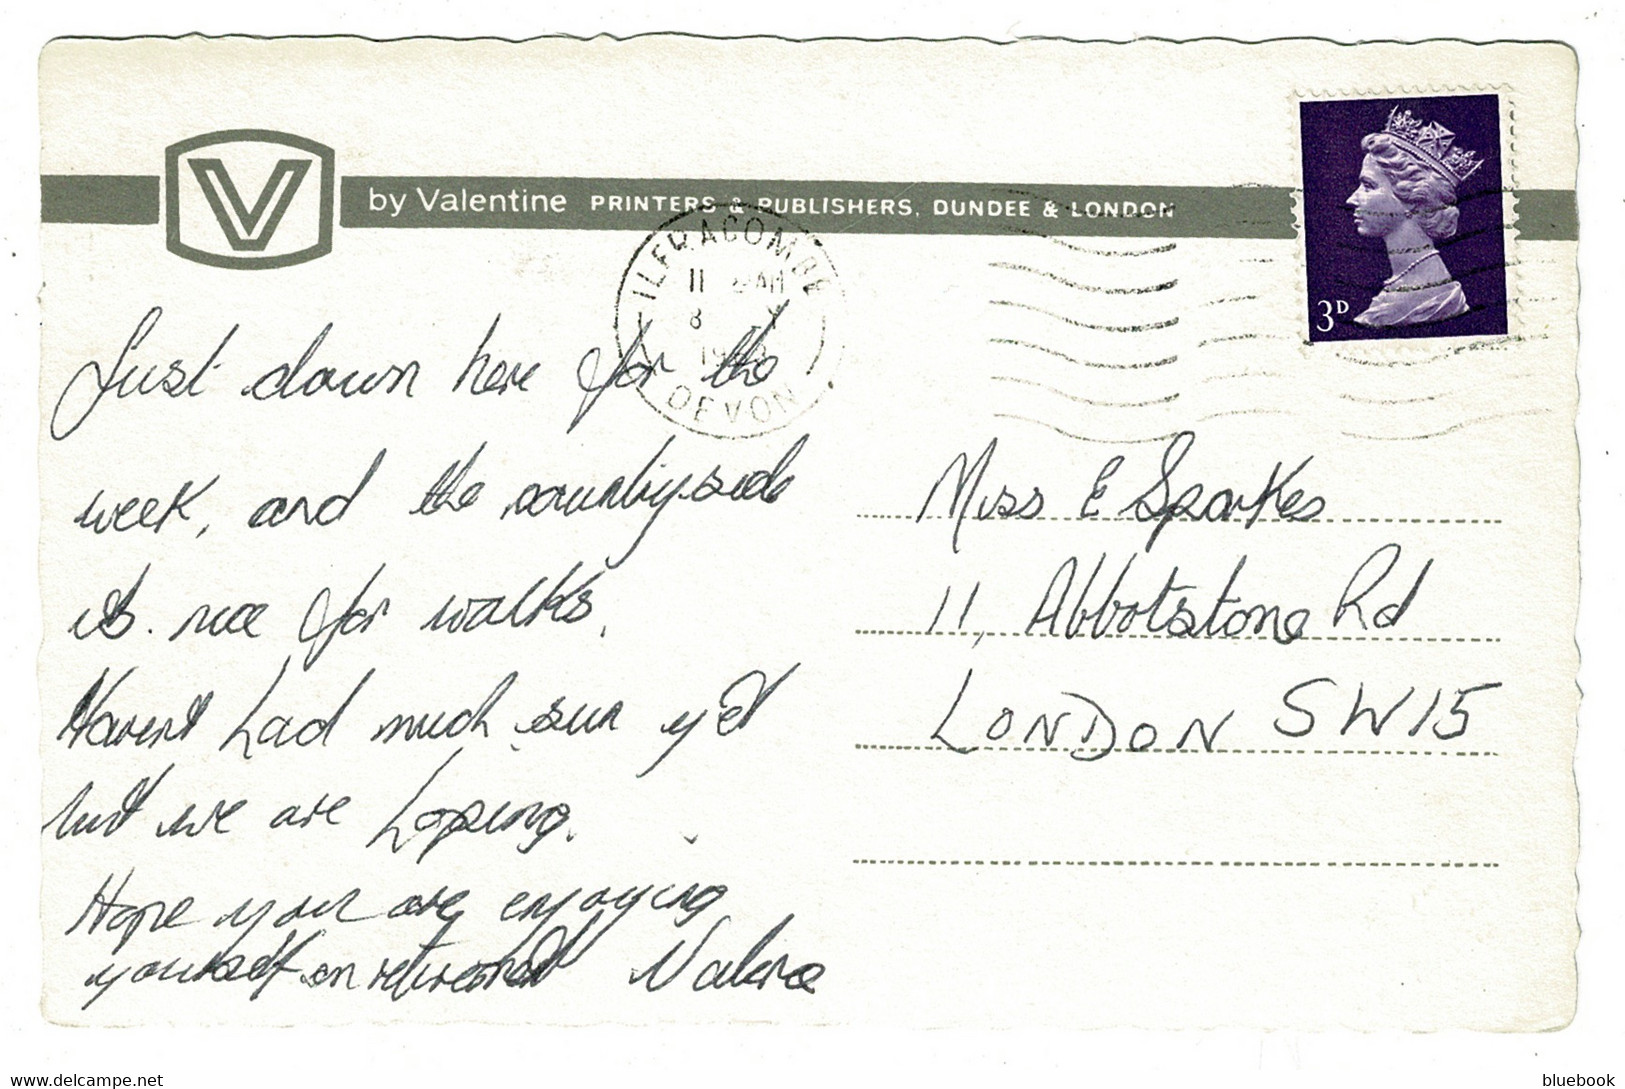 V
by Valentine PRINTERS & PUBLISHERS, DUNDEE & LONDON
ILFRACOMBE
11 AM
8
DEVON
3D
Just down here for the
week, and the countryside
is nice for walks.
Havent had much sun yet
but we are hoping.
Hope your are enjoying
yourself on retirement Valerie
Miss E Sparkes
11, Abbotstone Rd
LONDON SW15
bluebook